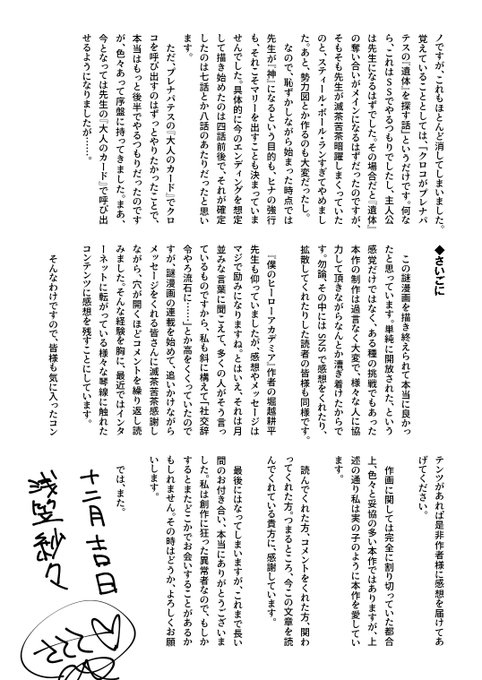 ノですが、これもほとんど消してしまいました。
覚えていることとしては、「クロコがプレナパ
テスの『遺体』を探す話」というだけです。何な
ら、これはSSでやるつもりでしたし、主人公
は先生になるはずでした。その場合だと『遺体』
の奪い合いがメインになるはずだったのですが、
そもそも先生が滅茶苦茶暗躍しまくっていた
のと、スティール・ボール・ランすぎてやめまし
た。あと、勢力図とか作るのも大変だったし。
なので、恥ずかしながら始まった時点では
先生が『神』になるという目的も、ヒナの強行
も、それこそマリーを出すことも決まっていま
せんでした。具体的に今のエンディングを想定
して描き始めたのは四話前後で、それが確定
したのは七話とか八話のあたりだったと思い
ます。
ただ、プレナパテスの『大人のカード』でクロ
コを呼び出すのはずっとやりたかったことで、
本当はもっと後半でやるつもりだったのです
が、色々あって序盤に持ってきました。まあ、
今となっては先生の『大人のカード』で呼び出
せるようになりましたが……。
◆さいごに
この謎漫画を描き終えられて本当に良かっ
たと思っています。単純に開放された、という
感覚だけではなく、ある種の挑戦でもあった
本作の制作は過言なく大変で、様々な人に協
力して頂きながらなんとか漕ぎ着けたからで
す。勿論、その中にはSNSで感想をくれたり、
拡散してくれたりした読者の皆様も同様です。
『僕のヒーローアカデミア』作者の堀越耕平
先生も仰っていましたが、感想やメッセージは
マジで励みになりますね。とはいえ、それは月
並みな言葉に聞こえて、多くの人がそう言っ
ているものですから、私も斜に構えて「社交辞
令やろ流石に……」とか高をくくっていたので
すが、謎漫画の連載を始めて、追いかけながら
メッセージをくれる皆さんに滅茶苦茶感謝し
ながら、穴が開くほどコメントを繰り返し読
みました。そんな経験を胸に、最近ではインタ
ーネットに転がっている様々な琴線に触れた
コンテンツに感想を残すことにしています。
そんなわけですので、皆様も気に入ったコン
テンツがあれば是非作者様に感想を届けてあ
げてください。
作画に関しては完全に割り切っていた都合
上、色々と妥協の多い本作ではありますが、上
述の通り私は実の子のように本作を愛してい
ます。
読んでくれた方、コメントをくれた方、関わ
ってくれた方。つまるところ、今この文章を読
んでくれている貴方に、感謝しています。
最後にはなってしまいますが、これまで長い
間のお付き合い、本当にありがとうございま
した。私は創作に狂った異常者なので、もしか
するとまたどこかでお会いすることがあるか
もしれません。その時はどうか、よろしくお願
いします。
では、また。
十二月吉日
浅笠紗々